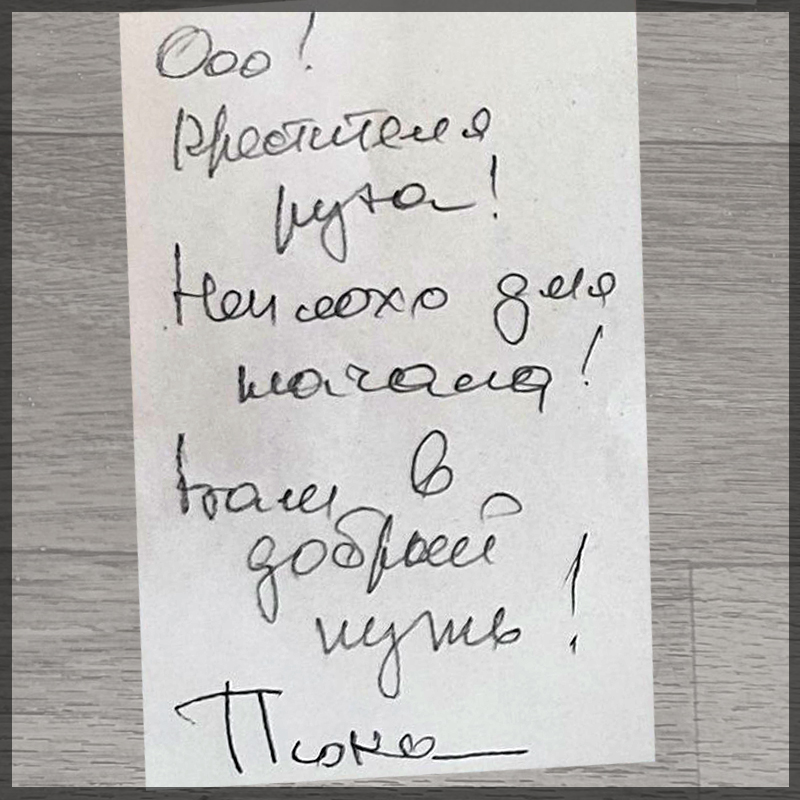 Ооо!
Крестителя
рука!
Неплохо для
начала!
Нам в
добрый
путь!